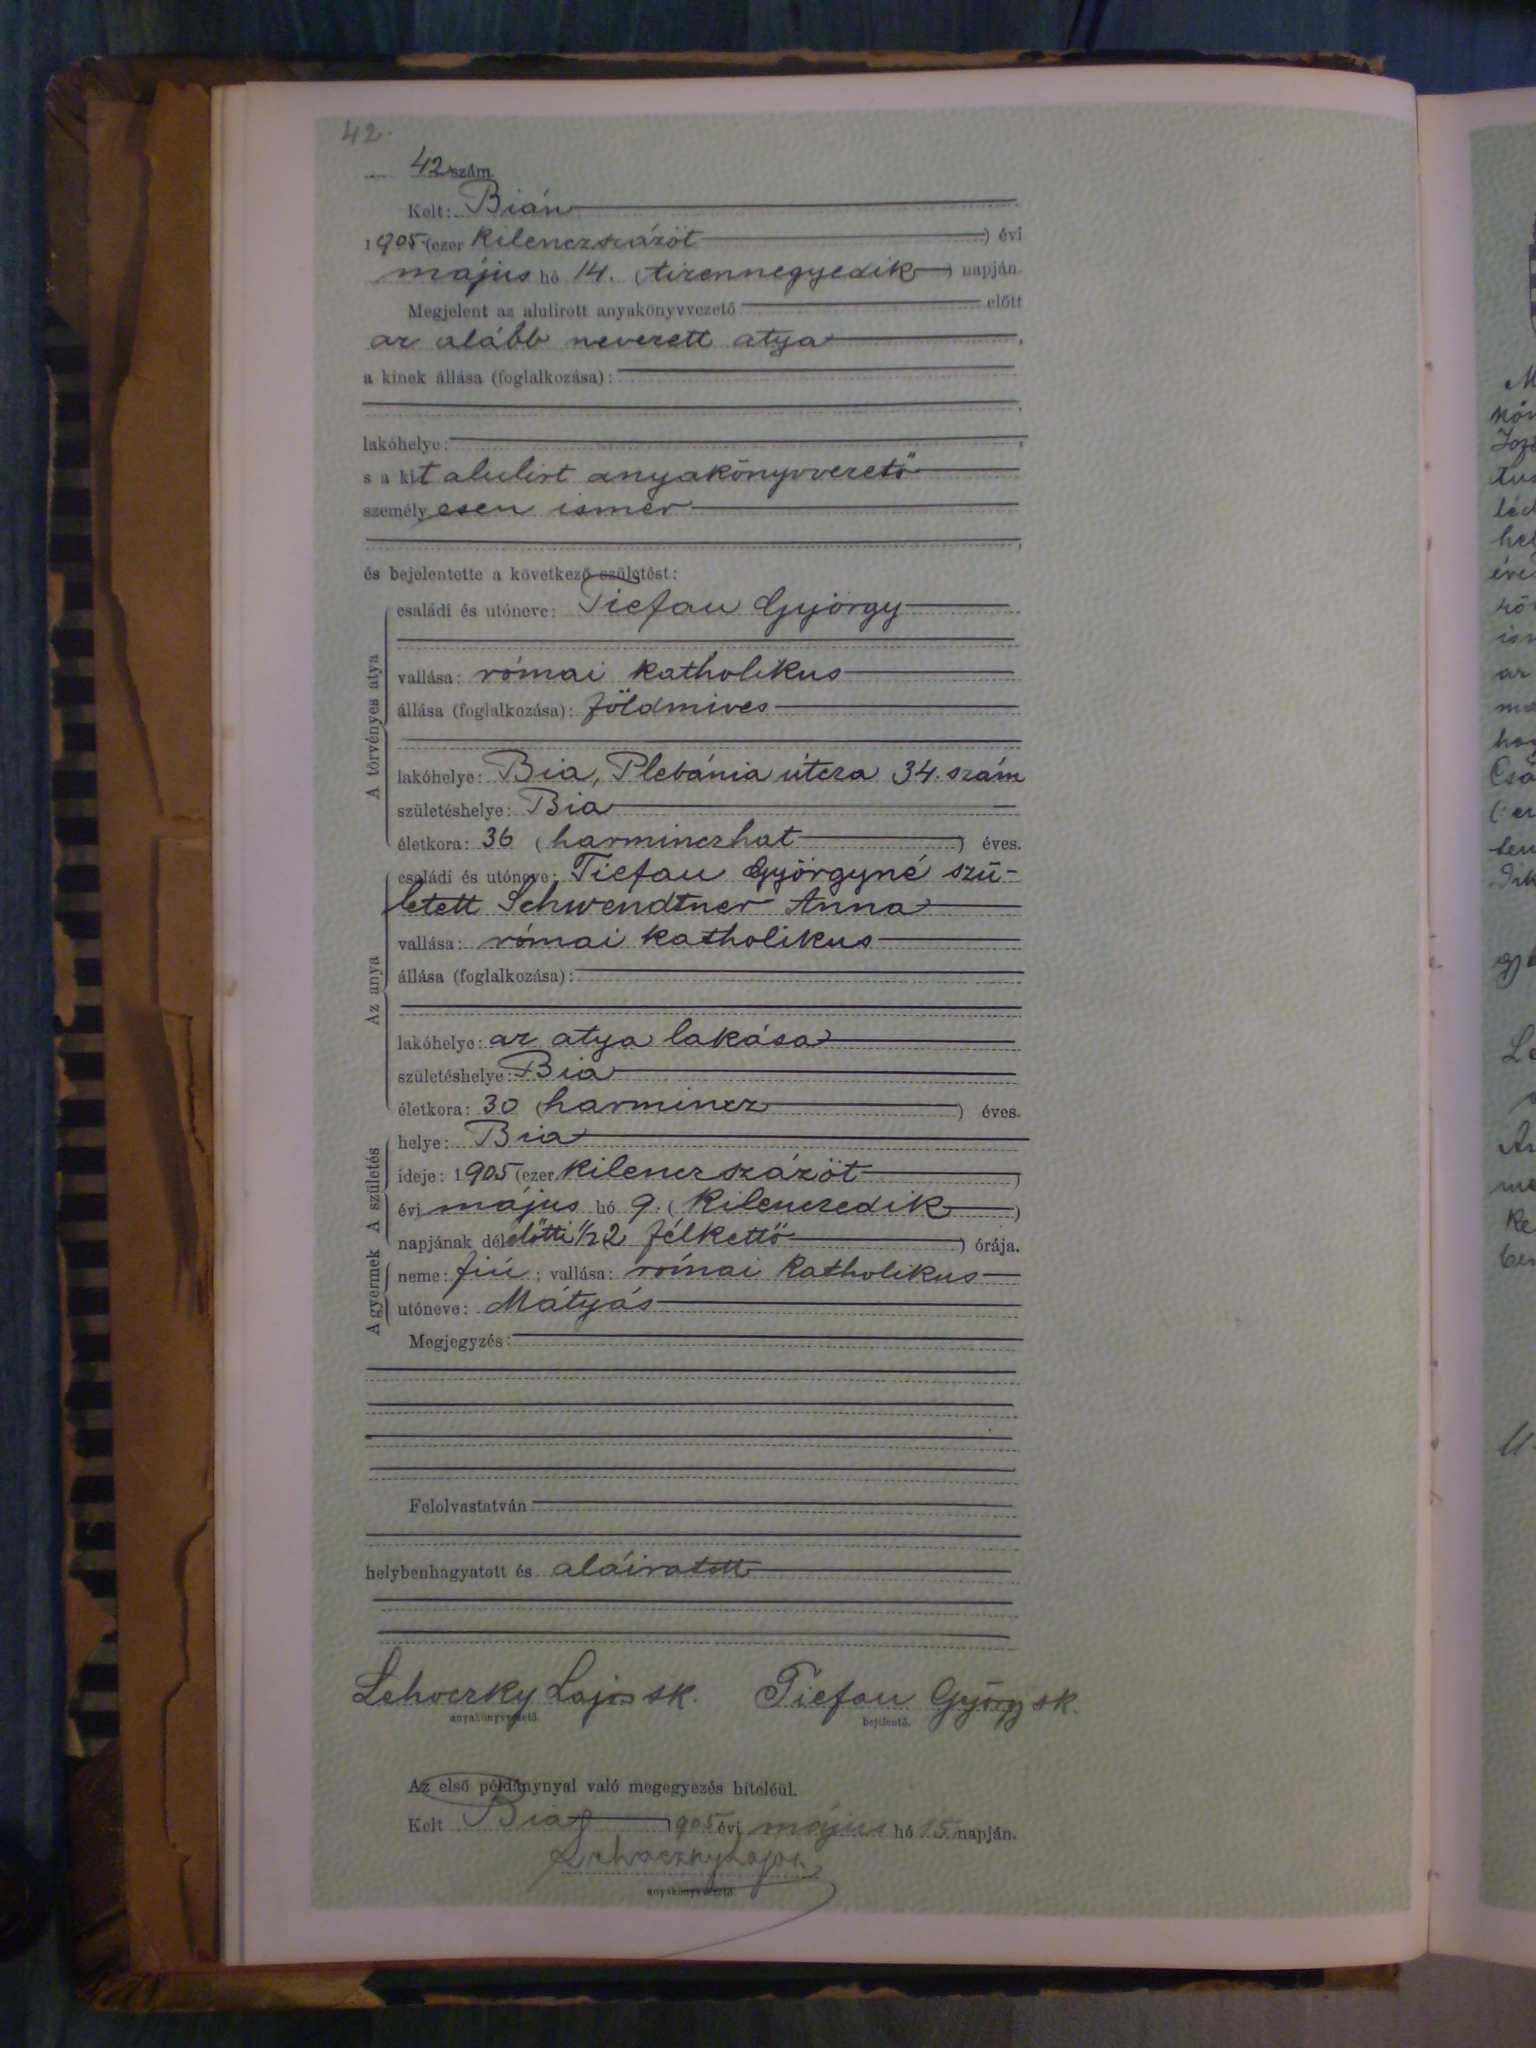 42.
42 szám.
Kelt: Bián
1905 (ezer kilenczszázöt) évi
május hó 14. (tizennegyedik) napján.
Megjelent az alulirott anyakönyvvezető előtt
az alább nevezett atya,
a kinek állása (foglalkozása):
lakóhelye:,
s a kit alulirt anyakönyvvezető
személyesen ismer
és bejelentette a következő születést:
A törvényes atya
családi és utóneve: Tiefau György
vallása: római katholikus
állása (foglalkozása): földmives
lakóhelye: Bia, Plebánia útcza 34. szám
születéshelye: Bia
életkora: 36 (harminczhat) éves.
Az anya
családi és utóneve: Tiefau Györgyné szü-
letett Schwendtner Anna
vallása: római katholikus
állása (foglalkozása):
lakóhelye: az atya lakása
születéshelye: Bia
életkora: 30 (harmincz) éves.
A születés
helye: Bia
ideje: 1905 (ezer kilenczszázöt)
évi május hó 9. (kilenczedik)
napjának délelőtti 1/2 2 félkettő) órája.
A gyermek
neme: fiú; vallása: római katholikus
utóneve: Mátyás
Megjegyzés:
Felolvastatván
helybenhagyatott és aláiratott
Lehoczky Lajos sk. Tiefau György sk.
anyakönyvvezető. bejelentő.
Az első példánynyal való megegyezés hiteléül.
Kelt Bia 1905 évi május hó 15 napján.
Lehoczky Lajos
anyakönyvvezető.